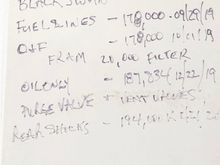 FUEL LINES - 178,000 - 09/29/19
OIL - 178,000 10/11/19
FRAM 20,000 FILTER
OIL ONLY - 187,834 12/22/19
PURGE VALVE + VENT VALVES
REAR SHOCKS - 194,